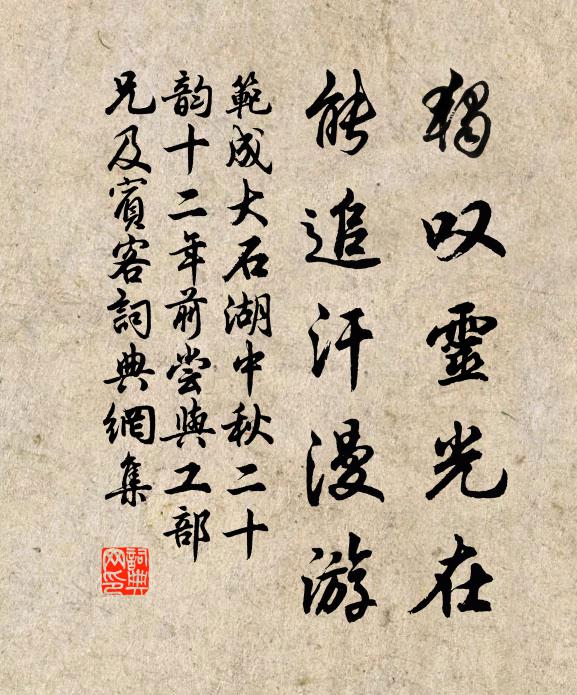 獨叹靈光在
能追汗漫游
範成大石湖中秋二十
韵十二年前嘗與工部
兄及賓客詞典網集
詞典网印